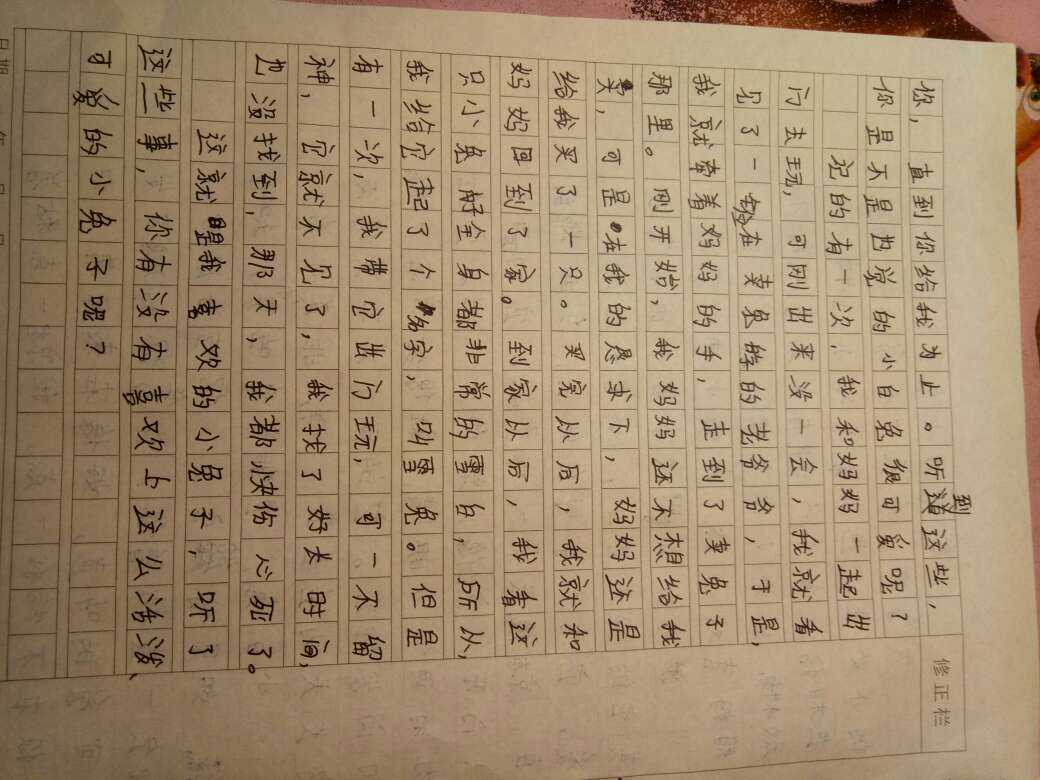 你,直到你给我为止。听到这些,
你是不是也觉的小白兔很可爱呢?
记的有一次,我和妈妈一起出
门去玩,可刚出来没一会,我就看
见了一个在卖兔的老爷爷,于是,
我就牵着妈妈的手,走到了卖兔子
那里。刚开始,我妈妈还不想给我
买,可是在我的恳求下,妈妈还是
给我买了一只。买完从后,我就和
妈妈回到了家。到家从后,我看这
只小兔子全身都非常的雪白,所从,
我给它起了个名字,叫雪兔。但是
有一次,我带它出门玩,可一不留
神,它就不见了,我找了好长时间,
也没找到,那天,我都快伤心死了。
这就是我喜欢的小兔子,听了
这些事,你有没有喜欢上这么活泼、
可爱的小兔子呢?
修正栏